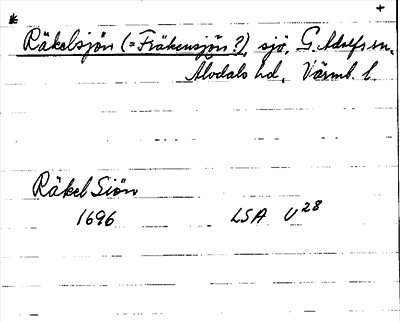 * +
Räkelsjön (= Fräkensjön ?), sjö, G. Adolfs sn,
Älvdals hd, Värml. l.
Räkel Siön
1696 LSA U 28